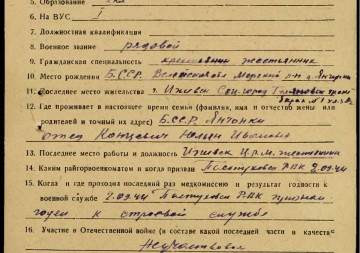 5. Образование
6. На ВУС I
7. Должностная квалификация
8. Военное звание рядовой
9. Гражданская специальность жестянник
10. Место рождения Б.ССР.
11. Последнее место жительства г. Ижевск Соц.город
12. Где проживает в настоящее время семья (фамилия, имя и отчество жены или
родителей и точный их адрес) Б.ССР.
отец Концевич Иванович
13. Последнее место работы и должность Ижевск жестянник
14. Каким райгорвоенкоматом и когда призван РВК 2.09.44
15. Когда и где проходил последний раз медкомиссию и результат годности к
военной службе 2.09.44 РВК признан
годен к строевой службе
16. Участие в Отечественной войне (в составе какой последней части и в качестве
Не участвовал